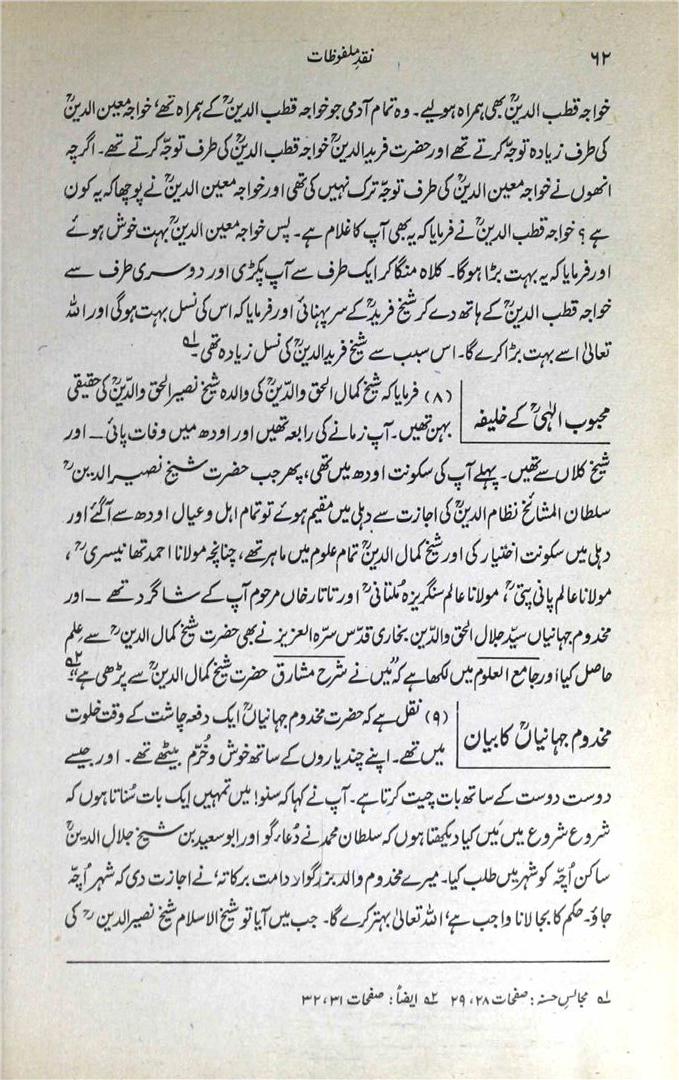 ۶۲
نقدِ ملفوظات
خواجہ قطب الدینؒ بھی ہمراہ ہولیے۔ وہ تمام آدمی جو خواجہ قطب الدینؒ کے ہمراہ تھے، خواجہ معین الدینؒ
کی طرف زیادہ توجّہ کرتے تھے اور حضرت فرید الدینؒ خواجہ قطب الدینؒ کی طرف توجّہ کرتے تھے۔ اگرچہ
انھوں نے خواجہ معین الدینؒ کی طرف توجّہ ترک نہیں کی تھی اور خواجہ معین الدینؒ نے پوچھا کہ یہ کون
ہے؟ خواجہ قطب الدینؒ نے فرمایا کہ یہ بھی آپ کا غلام ہے۔ پس خواجہ معین الدینؒ بہت خوش ہوئے
اور فرمایا کہ یہ بہت بڑا ہوگا۔ کلاہ منگا کر ایک طرف سے آپ پکڑی اور دوسری طرف سے
خواجہ قطب الدینؒ کے ہاتھ دے کر شیخ فریدؒ کے سر پہنائی اور فرمایا کہ اس کی نسل بہت ہوگی اور اللہ
تعالیٰ اسے بہت بڑا کرے گا۔ اس سبب سے شیخ فرید الدینؒ کی نسل زیادہ تھی۔ ؎۱
محبوب الٰہیؒ کے خلیفہ
(۸) فرمایا کہ شیخ کمال الحق والدّین کی والدہ شیخ نصیر الحق والدّینؒ کی حقیقی
بہن تھیں۔ آپ زمانے کی رابعہ تھیں اور اودھ میں وفات پائی — اور
شیخ کلاں سے تھیں۔ پہلے آپ کی سکونت اودھ میں تھی، پھر جب حضرت شیخ نصیر الدین ؒ
سلطان المشائخ نظام الدینؒ کی اجازت سے دہلی میں مقیم ہوئے تو تمام اہل و عیال اودھ سے آگئے اور
دہلی میں سکونت اختیار کی اور شیخ کمال الدینؒ تمام علوم میں ماہر تھے، چنانچہ مولانا احمد تھانیسری ؒ،
مولانا عالم پانی پتی ؒ، مولانا عالم سنگریزہ مُلتانی ؒ اور تاتار خاں مرحوم آپ کے شاگرد تھے — اور
مخدوم جہانیاں سیّد جلال الحق والدّین بخاری قدّس سرّہ العزیز نے بھی حضرت شیخ کمال الدین ؒ سے عِلم
حاصل کیا اور جامع العلوم میں لکھا ہے کہ ”میں نے شرح مشارق حضرت شیخ کمال الدینؒ سے پڑھی ہے“ ؎۲
مخدوم جہانیاںؒ کا بیان
(۹) نقل ہے کہ حضرت مخدوم جہانیاںؒ ایک دفعہ چاشت کے وقت خلوت
میں تھے۔ اپنے چند یاروں کے ساتھ خوش و خُرّم بیٹھے تھے۔ اور جیسے
دوست دوست کے ساتھ بات چیت کرتا ہے۔ آپ نے کہا کہ سنو! میں تمہیں ایک بات سُناتا ہوں کہ
شروع شروع میں مَیں کیا دیکھتا ہوں کہ سلطان محمد نے دُعا گو اور ابو سعید بن شیخ جلال الدینؒ
ساکن اُچّہ کو شہر میں طلب کیا۔ میرے مخدوم والد بزرگوار دامت برکاتہ، نے اجازت دی کہ شہر اُچّہ
جاؤ۔ حکم کا بجا لانا واجب ہے، اللہ تعالیٰ بہتر کرے گا۔ جب میں آیا تو شیخ الاسلام شیخ نصیر الدین ؒ کی
؎۱ مجالسِ حسنہ: صفحات ۲۸، ۲۹ ؎۲ ایضاً: صفحات ۳۱، ۳۲